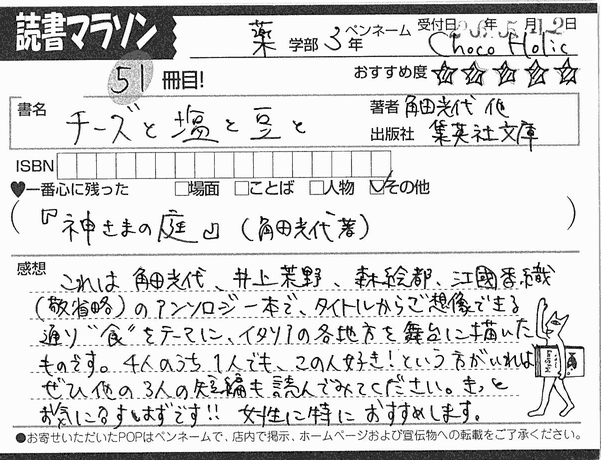 読書マラソン
薬 学部 3年
ペンネーム Choco Holic
受付日 年 5月12日
51冊目!
おすすめ度 ☆☆☆☆☆
書名 チーズと塩と豆と
著者 角田光代 他
出版社 集英社文庫
ISBN
♥一番心に残った □場面 □ことば □人物 ☑その他
(『神さまの庭』(角田光代著) )
感想
これは 角田光代、井上荒野、森絵都、江國香織
(敬省略)のアンソロジー本で、タイトルからご想像できる
通り“食”をテーマに、イタリアの各地方を舞台に描いた
ものです。4人のうち1人でも、この人好き!という方がいれば
ぜひ他の3人の短編も読んでみてください。きっと
お気に召すはずです!! 女性に特におすすめします。
●お寄せいただいたPOPはペンネームで、店内で掲示、ホームページおよび宣伝物への転載をご了承ください。